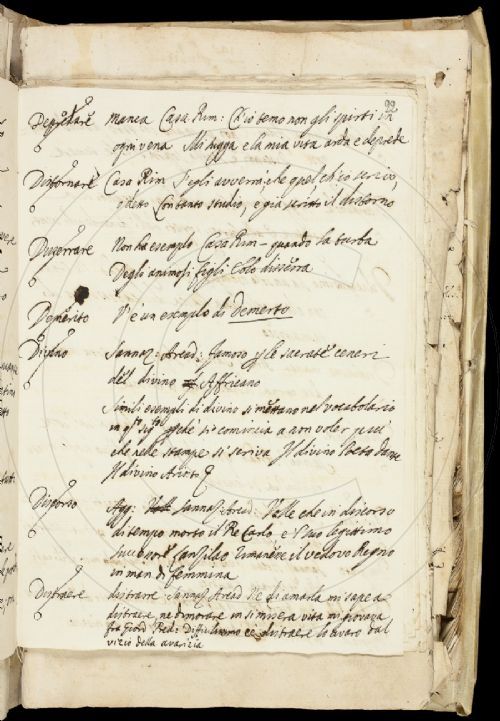 22
Depredare manca Casa Rim: Ch'io temo non gli spirti in
ogni vena Mi sugga e la mia vita arda e deprede
Distornare Casa Rim Segli avverrà, che quel, ch'io scrivo,
detto Con tanto studio, e già scritto il distorno
Disserrare Non ha esempio Casa Rim – quando la turba
Degli animosi figli Eolo disserra
Demerito V'è un esempio di Demerto
Divino Sannaz: Arcad: famoso per le sacrate ceneri
del divino Affricano
Simili esempli di divino si mettano nel vocabolario
in questo perché si comincia a non voler più
che nelle stampe si scriva Il divino Poeta Dante
Il divino Ariosto
Discorso Sannaz: Arcad: Volle che in discorso
di tempo morto il Re Carlo e 'l suo legittimo
Lanzilao rimanesse il vedovo Regno
in man di femmina
Distraere distrarre Sannaz Arcad Ne di amarla mi sapea
distraere, ne dimorare in si misera vita mi giovava
fra Giord Pred: Difficilissimo è distraere lo avaro dal
vizio della avarizia